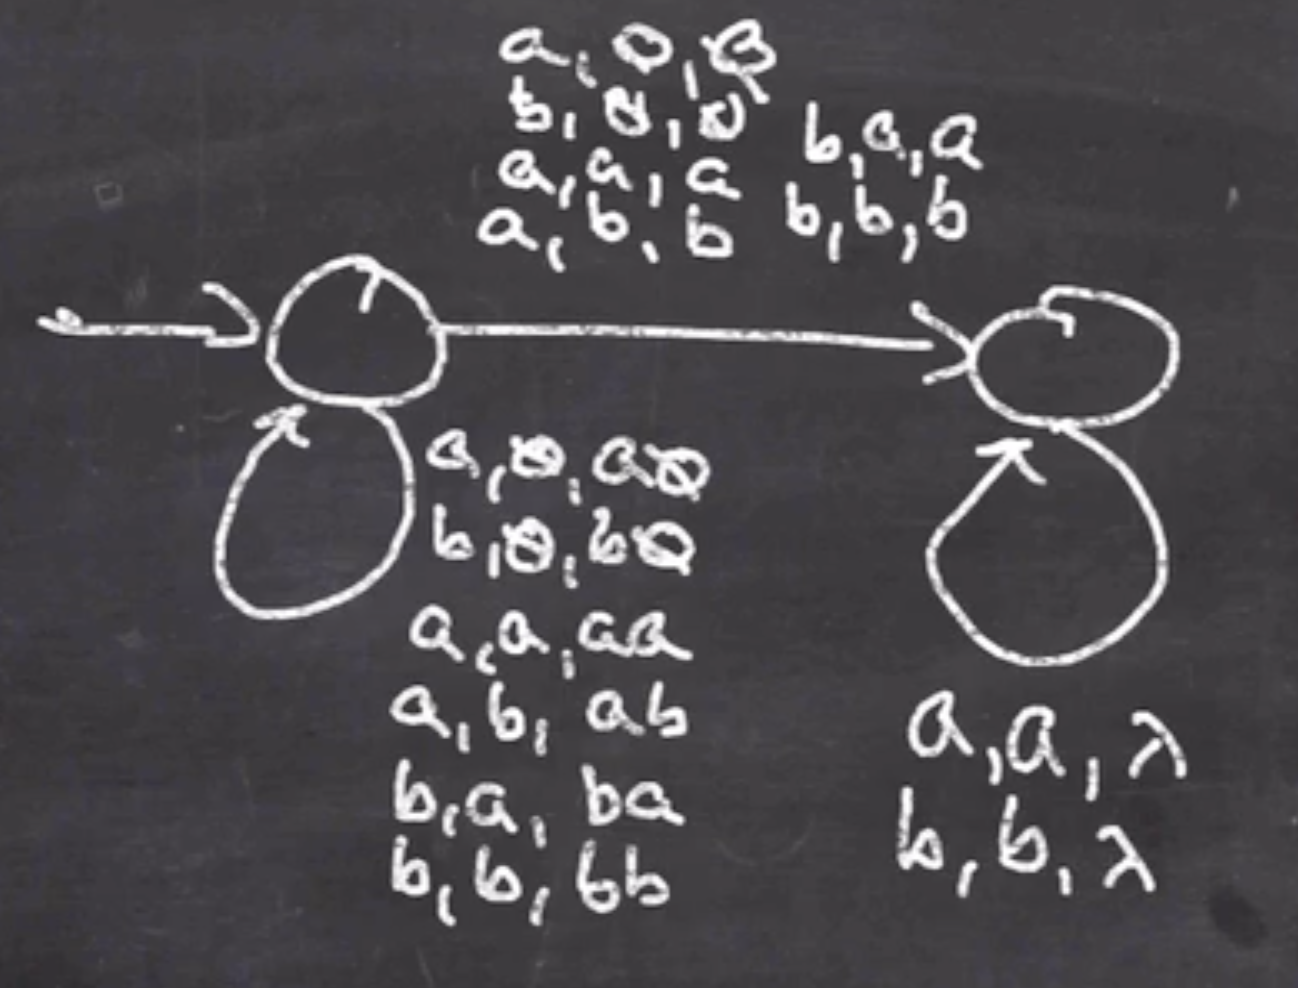 a, 0, 0
b, 0, 0
a, a, a
a, b, b
b, a, a
b, b, b
a, 0, a0
b, 0, b0
a, a, aa
a, b, ab
b, a, ba
b, b, bb
a, a, λ
b, b, λ